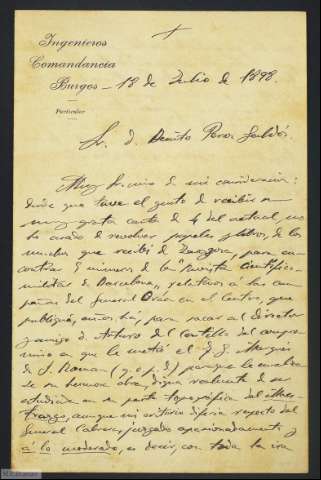 Ingenieros
Comandancia
Burgos — 18 de Julio de 1898.
Particular
Sr. D. Benito Perez Galdós.
Muy Sr. mio de mi consideracion:
desde que tuve el gusto de recibir su
muy grata carta de 4 del actual, no
he cesado de revolver papeles y libros, de los
muchos que recibí de Zaragoza, para en-
contrar 5 números de la "Revista Cientifico-
militar de Barcelona", relativos á las cam-
pañas del General Oráa en el Centro, que
publiqué, años há, para sacar al director
y amigo D. Arturo del Castillo del compro-
miso en que le metió el
de S. Roman (q. e. p. d) porque le
de su famosa obra, digna realmente de ser
estudiada en su parte topográfica del Maes-
trazgo, aunque mi criterio difería respecto del
General Cabrera, juzgado apasionadamente y
á lo moderado, es decir, con toda la ira